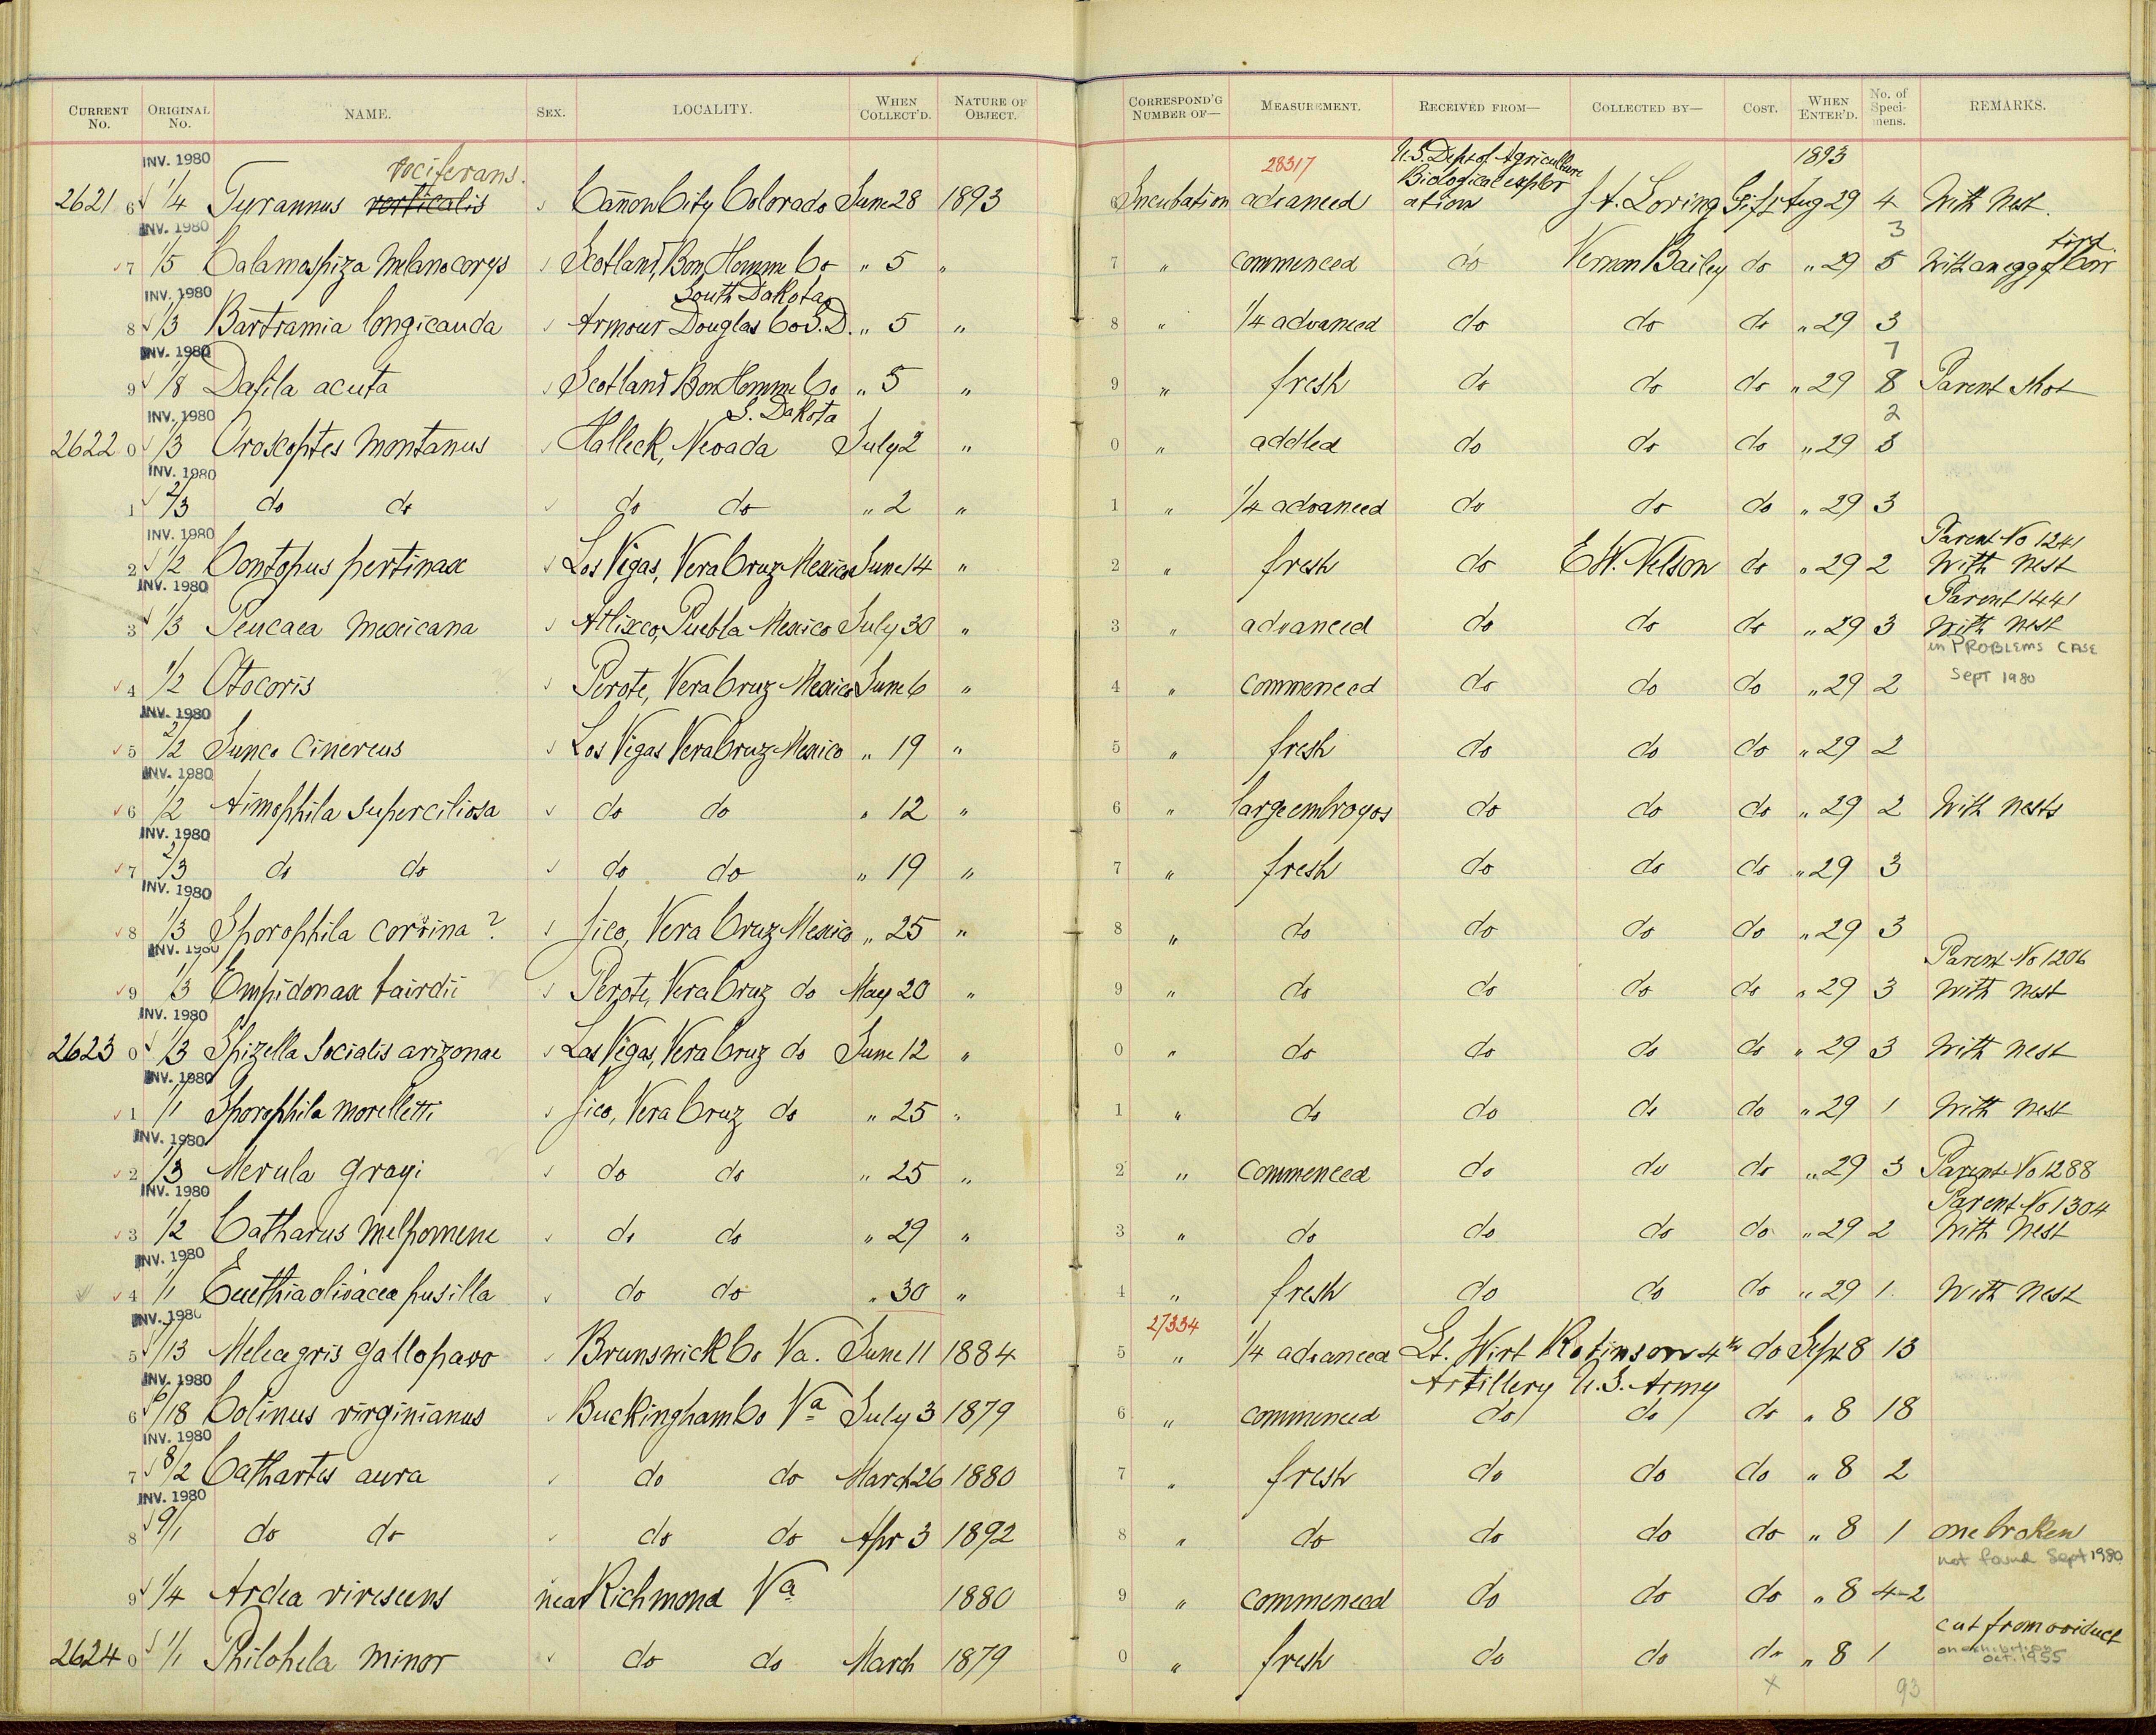 CURRENT No. ORIGINAL No. NAME. SEX. LOCALITY. WHEN COLLECT'D. NATURE OF OBJECT. CORRESPOND'G NUMBER OF— MEASUREMENT. RECEIVED FROM— COLLECTED BY— COST. WHEN ENTER'D. No. of Speci-mens. REMARKS.
INV. 1980 vociferans. 28317 U.S. Dept of Agriculture 1893
2621 6 1/4 Tyrannus verticalis Cañon City Colorado June 28 1893 6 Incubation advanced Biological explor ation J.A. Loring Gift Aug 29 4 With Nest.
INV. 1980 3
7 1/5 Calamospiza melanocorys Scotland, Bon Homme Co " 5 " 7 " commenced do Vernon Bailey do " 29 5 With an egg of
INV. 1980 South Dakota
8 1/3 Bartramia longicauda Armour Douglas Co S.D. " 5 " 8 " 1/4 advanced do do do " 29 3
INV. 1980 7
9 1/8 Dafila acuta Scotland Bon Homme Co " 5 " 9 " fresh do do do " 29 8 Parent shot
INV. 1980 S. Dakota 2
2622 0 1/3 Oroscoptes montanus Halleck, Nevada July 2 " 0 " addled do do do " 29 3
INV. 1980
1 2/3 do do do do " 2 " 1 " 1/4 advanced do do do " 29 3
INV. 1980 Parent No 1241
2 1/2 Contopus pertinax Los Vigas, Vera Cruz Mexico June 14 " 2 " fresh do E.W. Nelson do " 29 2 With nest
INV. 1980 Parent 1441
3 1/3 Peucaea mexicana Atlixco, Puebla Mexico July 30 " 3 " advanced do do do " 29 3 With nest
in PROBLEMS CASE
4 1/2 Otocoris Perote, Vera Cruz Mexico June 6 " 4 " commenced do do do " 29 2 Sept 1980
INV. 1980
5 2/2 Junco cinereus Los Vigas Vera Cruz Mexico " 19 " 5 " fresh do do do " 29 2
INV. 1980
6 1/2 Aimophila superciliosa do do " 12 " 6 " large embroyos do do do " 29 2 With nests
INV. 1980
7 2/3 do do do do " 19 " 7 " fresh do do do " 29 3
INV. 1980
8 1/3 Sporophila corvina ? Jico, Vera Cruz Mexico " 25 " 8 " do do do do " 29 3
INV. 1980 Parent No 1206
9 1/3 Empidonax bairdii Perote, Vera Cruz do May 20 " 9 " do do do do " 29 3 With nest
INV. 1980
2623 0 1/3 Spizella socialis arizonae Las Vigas, Vera Cruz do June 12 " 0 " do do do do " 29 3 With nest
INV. 1980
1 1/1 Sporophila morelletti Jico, Vera Cruz do " 25 " 1 " do do do do " 29 1 With nest
INV. 1980
2 1/3 Merula grayi do do " 25 " 2 " commenced do do do " 29 3 Parent No 1288
INV. 1980 Parent No 1304
3 1/2 Catharus melpomene do do " 29 " 3 " do do do do " 29 2 With Nest
INV. 1980
4 1/1 Euethia olivacea pusilla do do " 30 " 4 " fresh do do do " 29 1 With nest
INV. 1980 27334
5 1/13 Meleagris gallopavo Brunswick Co Va. June 11 1884 5 " 1/4 advanced Lt. Wirt Robinson 4th do Sept 8 13
INV. 1980 Artillery U.S. Army
6 6/18 Colinus virginianus Buckingham Co Va July 3 1879 6 " commenced do do do " 8 18
INV. 1980
7 8/2 Cathartes aura do do March 26 1880 7 " fresh do do do " 8 2
INV. 1980
8 9/1 do do do do Apr 3 1892 8 " do do do do " 8 1 one broken
not found Sept 1980
9 1/4 Ardea virescens near Richmond Va 1880 9 " commenced do do do " 8 4-2
cut from oviduct
2624 0 1/1 Philohela minor do do March 1879 0 " fresh do do do " 8 1 on exhibition Oct. 1955
x 93